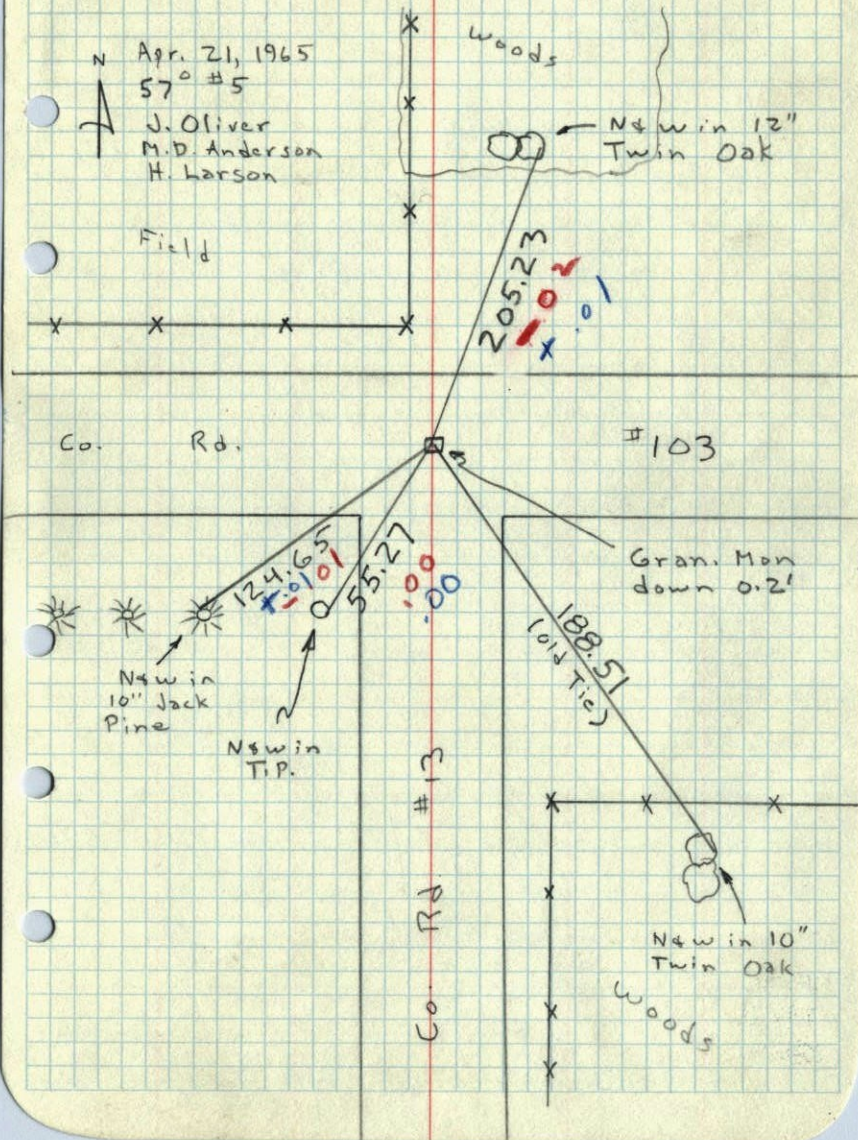 N
Apr. 21, 1965
57° #5
J. Oliver
M.D. Anderson
H. Larson
Woods
N&W in 12"
Twin Oak
Field
205.23
.02
x .01
Co. Rd. #103
Gran. Mon
down 0.2'
124.65
x .01 .01
55.27
.00
.00
188.51
(old Tie)
N&W in
10" Jack
Pine
N&W in
T.P.
Co. Rd. #13
N&W in 10"
Twin Oak
Woods